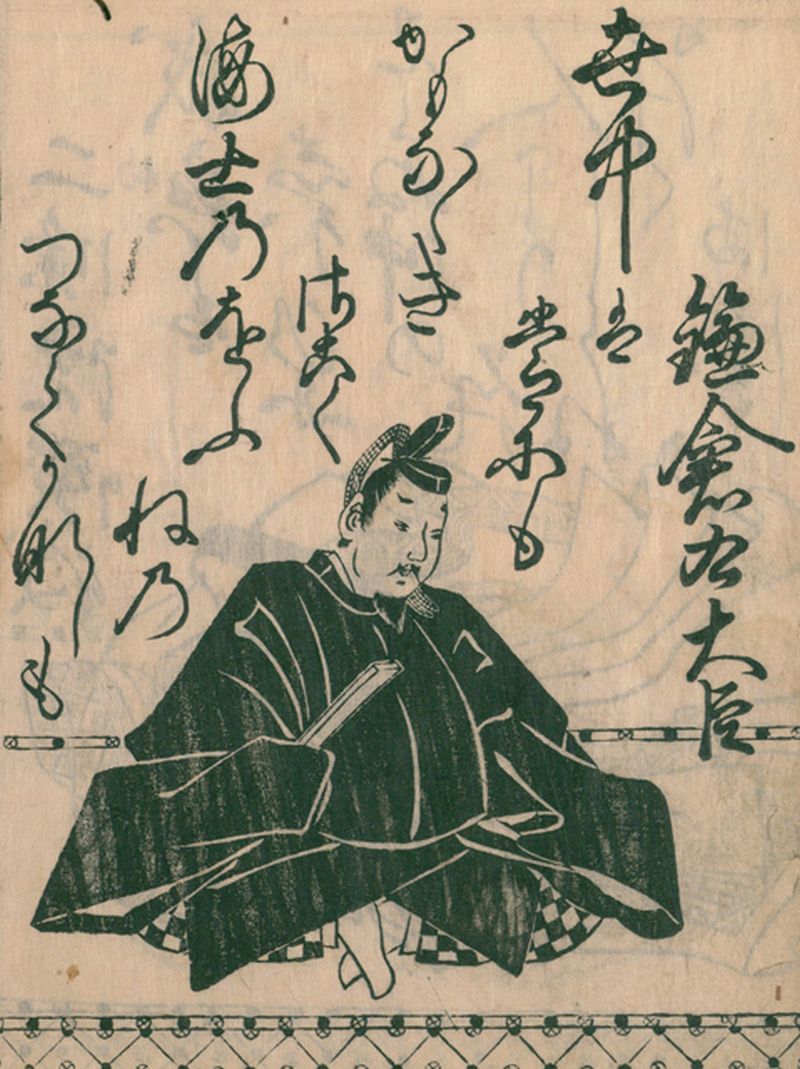 鎌倉右大臣
世中は
常尓も
かもなゝき
さこく
海士乃をふ
ね乃
つなてかなしも